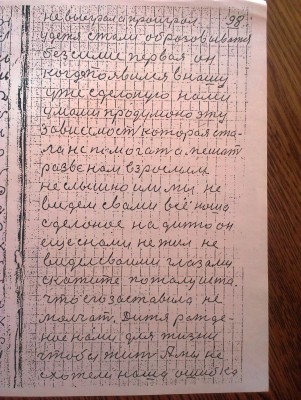 не выиграла проиграл 98.
у детя стали образовыватся
безсилие первая он
когда появился в нашу
уже сделоную нами
умами продумоно эту
зависимост которая ста-
ла не помогат а мешат
разве нам взрослым
не слышно им мы не
видем с вами всё наше
сделоное на дитю он
еще с нами не жил не
видел своими глазами
скажите пожалуйста
что его заставила не
молчат. Дитя рожде-
ное нами для жизни
чтобы жит А мы не
схотели наша ошибка